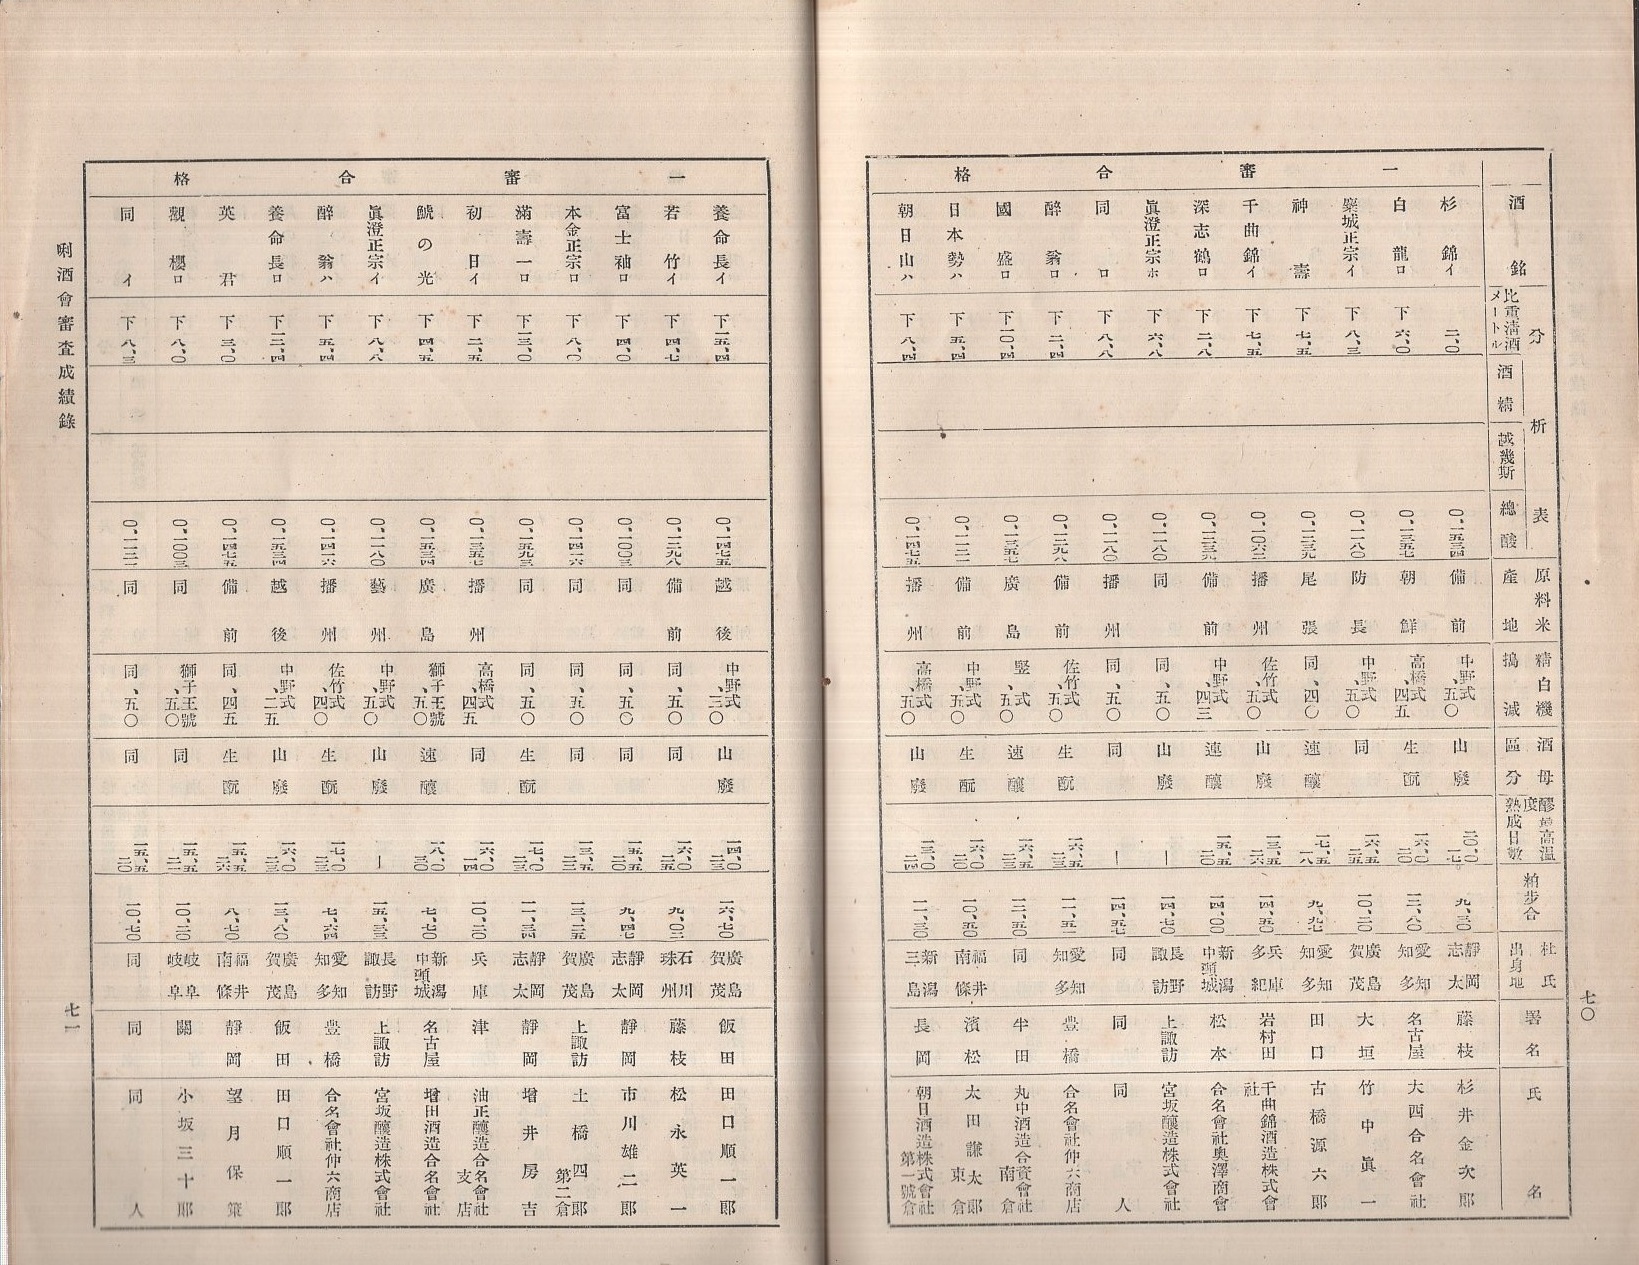 七〇
酒銘
分析表
比重清酒メートル
酒精
越幾斯
總酸
原料米產地
精白機搗減
酒母區分
醪最高温度熟成日數
粕步合
杜氏出身地
署名
氏名
一審合格
杉錦イ 二、〇 〇、一五三四 備前 中野式、五〇 山廢 二〇、〇 一七 九、三〇 靜岡志太 藤枝 杉井金次郎
白龍ロ 下六、〇 〇、一三五七 朝鮮 高橋式、四五 生酛 一六、〇 二〇 一三、八〇 愛知知多 名古屋 大西合名會社
城正宗イ 下八、三 〇、一一八〇 防長 中野式、五〇 同 一六、五 二五 一〇、二〇 廣島賀茂 大垣 竹中眞一
神壽 下七、五 〇、一二三九 尾張 同、四〇 速釀 一七、五 一八 九、九七 愛知知多 田口 古橋源六郎
千曲錦イ 下七、五 〇、一〇六二 播州 佐竹式、五〇 山廢 一三、五 二六 一四、五〇 兵庫多紀 岩村田 千曲錦酒造株式會社
深志鶴ロ 下二、八 〇、一二三九 備前 中野式、四三 速釀 一五、五 二〇 一四、〇〇 新潟中頸城 松本 合名會社奧澤商會
眞澄正宗ホ 下六、八 〇、一一八〇 同 同、五〇 山廢 — 一四、七〇 長野諏訪 上諏訪 宮坂釀造株式會社
同ロ 下八、八 〇、一一八〇 播州 同、五〇 同 — 一四、五七 同 同 同人
醉翁ロ 下二、四 〇、一二九八 備前 佐竹式、五〇 生酛 一六、五 二三 一一、五一 愛知知多 豊橋 合名會社仲六商店
國盛ロ 下一〇、四 〇、一三五七 廣島 竪式、五〇 速釀 一六、五 二三 一二、五〇 同 半田 丸中酒造合資會社南倉
日本勢ハ 下五、四 〇、一一二一 備前 中野式、五〇 生酛 一六、〇 二〇 一〇、五〇 福井南條 濱松 太田謙太郎東倉
朝日山ハ 下八、四 〇、一四七五 播州 高橋式、五〇 山廢 一三、〇 二四 一一、三〇 新潟三島 長岡 朝日酒造株式會社第一號倉
一審合格
養命長イ 下一五、四 〇、一四七五 越後 中野式、三〇 山廢 一四、〇 二三 一六、七〇 廣島賀茂 飯田 田口順一郎
若竹イ 下四、七 〇、一二九八 備前 同、五〇 同 一六、〇 二五 九、〇二 石川珠州 藤枝 松永英一
富士秞ロ 下四、〇 〇、一〇〇三 同 同、五〇 同 一五、五 二〇 九、四七 靜岡志太 靜岡 市川雄二郎
本金正宗ロ 下八、〇 〇、一四一六 同 同、五〇 同 一三、五 二二 一三、二五 廣島賀茂 上諏訪 土橋四郎第二倉
滿壽一ロ 下一三、〇 〇、一五九三 同 同、五〇 生酛 一七、〇 二〇 一一、三四 靜岡志太 靜岡 增井房吉
初日イ 下二、五 〇、一三五七 播州 高橋式、四五 同 一六、〇 一四 一〇、二〇 兵庫 津 油正釀造合名會社支店
鯱の光 下四、五 〇、一五三四 廣島 獅子王號、五〇 速釀 一八、〇 三〇 七、七〇 新潟中頸城 名古屋 增田酒造合名會社
眞澄正宗イ 下八、八 〇、一一八〇 藝州 中野式、五〇 山廢 — 一五、三三 長野諏訪 上諏訪 宮坂釀造株式會社
醉翁ハ 下五、四 〇、一四一六 播州 佐竹式、四〇 生酛 一七、〇 二三 七、六四 愛知知多 豊橋 合名會社仲六商店
養命長ロ 下一二、四 〇、一五三四 越後 中野式、二五 山廢 一六、〇 二三 一三、八〇 廣島賀茂 飯田 田口順一郎
英君 下三、〇 〇、一四七五 備前 同、四五 生酛 一五、五 二六 八、七〇 福井南條 靜岡 望月保策
觀櫻ロ 下八、〇 〇、一〇〇三 同 獅子王號、五〇 同 一五、五 二一 一〇、二〇 岐阜岐阜 關 小坂三十郎
同イ 下八、三 〇、一一二一 同 同、五〇 同 一五、五 二〇 一〇、七〇 同 同 同人
唎酒會審査成績錄
七一